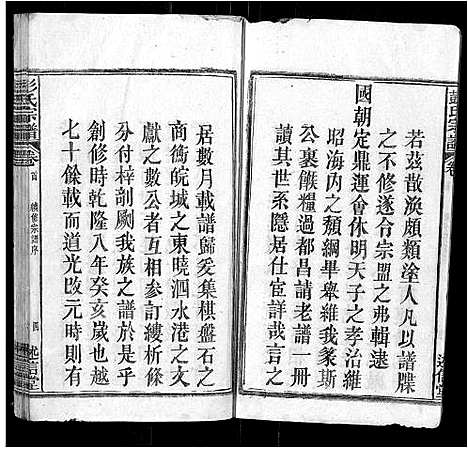 若茲散渙頗類塗人凡以譜牒
之不修遂令宗盟之弗輯逮
國朝定鼎運會休明天子之孝治維
昭海內之頹綱畢舉維我篆斯
公裹餱糧過都昌請老譜一冊
讀其世系隱居仕宦詳哉言之
彭氏宗譜
卷
首
續修宗譜序
四
述信堂
居數月載譜歸爰集棋盤石之
商衡皖城之東曉泗水港之文
獻之數公者互相參訂縷析條
分付梓剞劂我族之譜於是
創修時乾隆八年癸亥歲也越
七十餘載而道光改元時則有